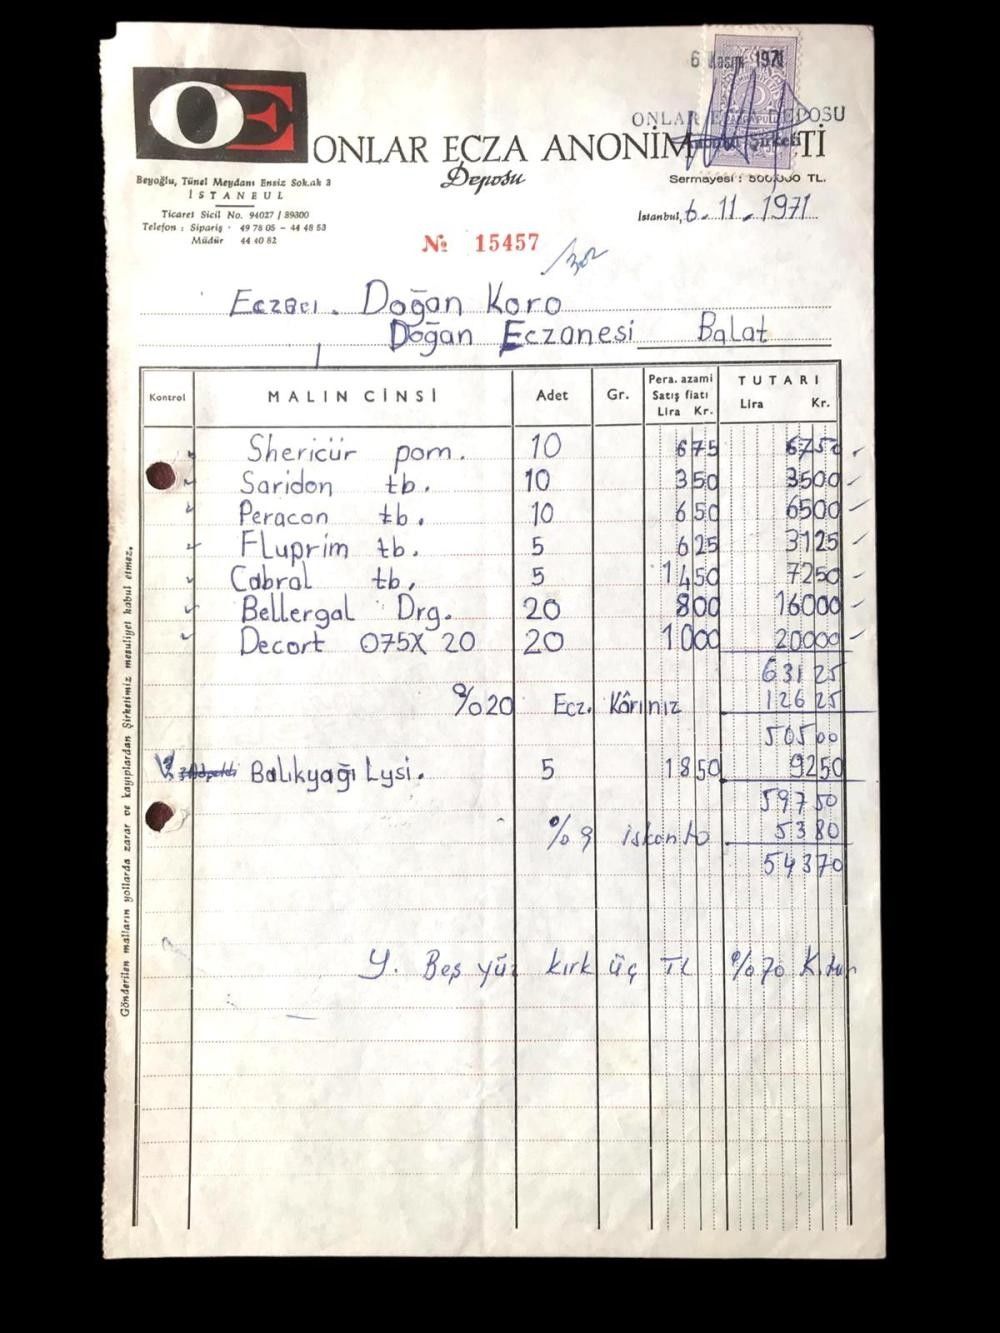 6 Kasım 1971
ONLAR ECZA DEPOSU
OE
ONLAR ECZA ANONİM Tİ
Deposu
Sermayesi : 500.000 TL.
Beyoğlu, Tünel Meydanı Ensiz Sokak 3
İSTANBUL
Ticaret Sicil No. 94027 / 39300
Telefon : Sipariş · 49 78 05 – 44 48 53
Müdür 44 40 82
İstanbul, 6.11.1971
№ 15457
Eczacı. Doğan Koro
Doğan Eczanesi Balat
Kontrol MALIN CİNSİ Adet Gr. Pera. azami Satış fiatı Lira Kr. TUTARI Lira Kr.
Shericür pom. 10 675 6750
Saridon tb. 10 350 3500
Peracon tb. 10 650 6500
Fluprim tb. 5 625 3125
Cabral tb. 5 1450 7250
Bellergal Drg. 20 800 16000
Decort 075X20 20 1000 20000
63125
%20 Ecz. Kârınız 12625
50500
Balıkyağı Lysi. 5 1850 9250
59750
%9 iskonto 5380
54370
Y. Beş yüz kırk üç TL %70 K.
Gönderilen malların yollarda zarar ve kayıplardan Şirketimiz mesuliyet kabul etmez.